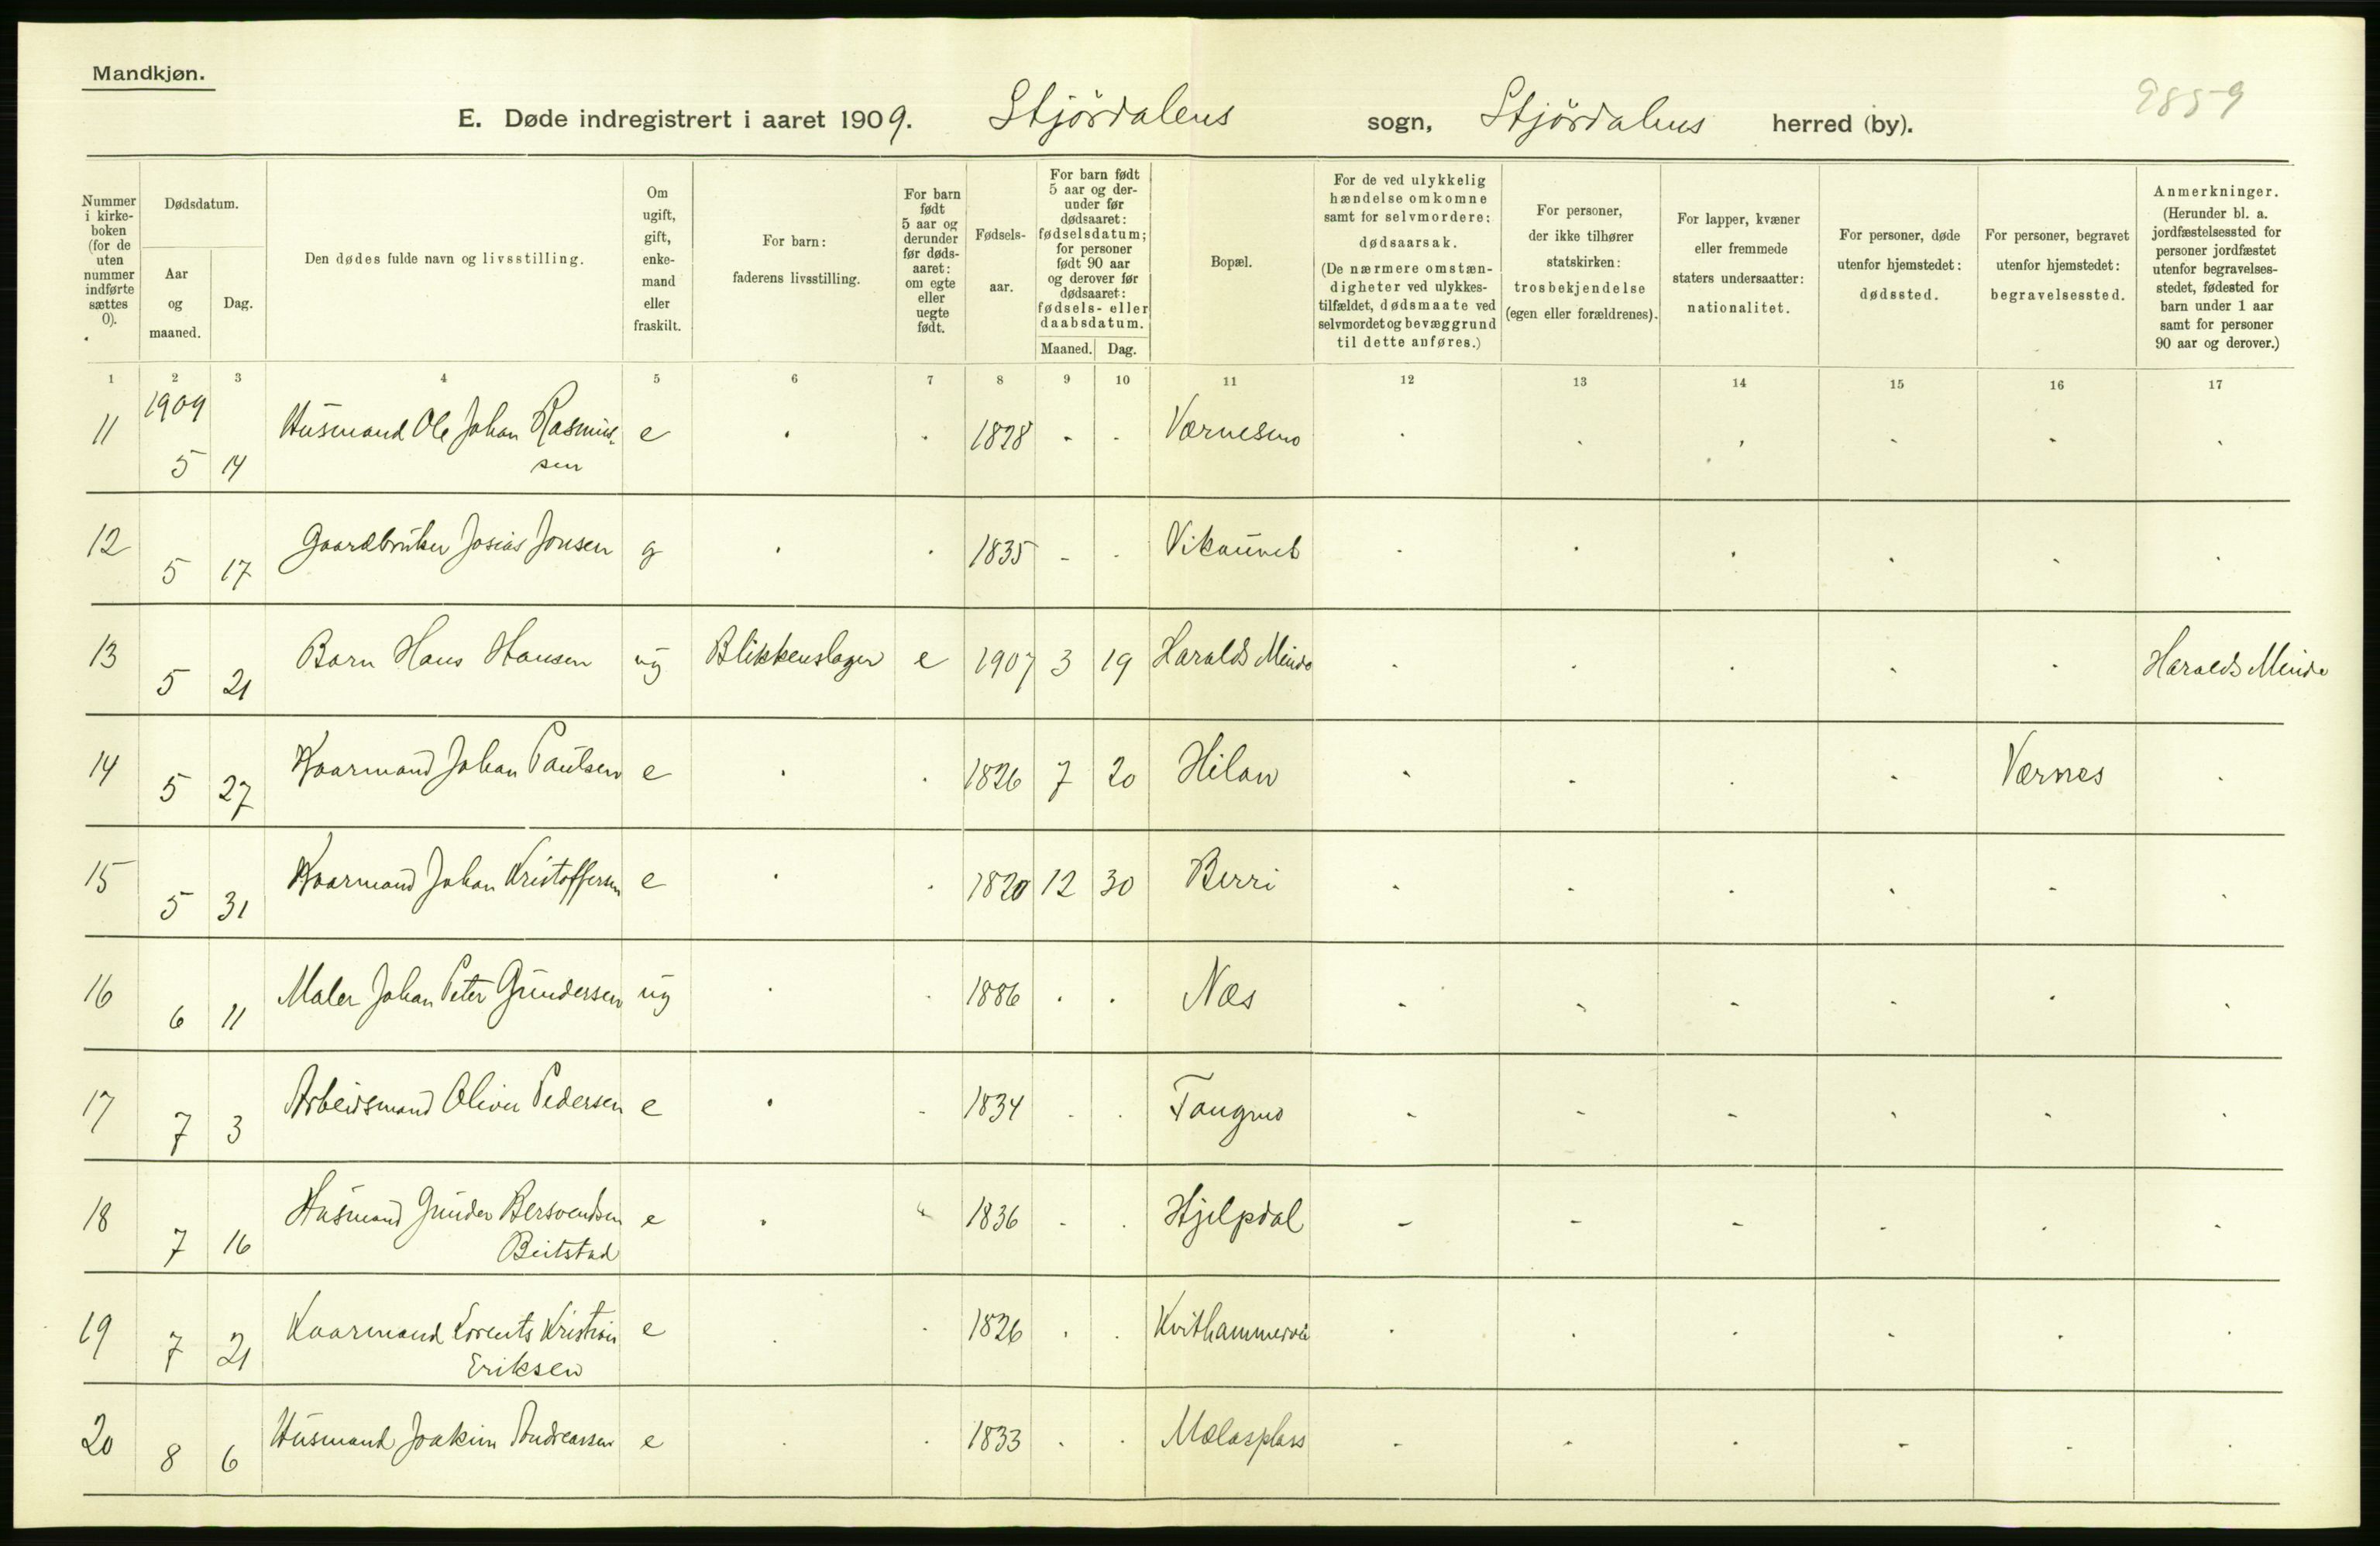 Mandkjøn.
9859
E. Døde indregistrert i aaret 1909. Stjördalens sogn, Stjördalens herred (by).
Nummer i kirkeboken (for de uten nummer indførte sættes 0).
Dødsdatum.
Aar og maaned.
Dag.
Den dødes fulde navn og livsstilling.
Om ugift, gift, enkemand eller fraskilt.
For barn: faderens livsstilling.
For barn født 5 aar og derunder før dødsaaret: om egte eller uegte født.
Fødselsaar.
For barn født 5 aar og derunder før dødsaaret: fødselsdatum; for personer født 90 aar og derover før dødsaaret: fødsels- eller daabsdatum.
Maaned. Dag.
Bopæl.
For de ved ulykkelig hændelse omkomne samt for selvmordere: dødsaarsak. (De nærmere omstændigheter ved ulykkestilfældet, dødsmaate ved selvmordet og bevæggrund til dette anføres.)
For personer, der ikke tilhører statskirken: trosbekjendelse (egen eller forældrenes).
For lapper, kvæner eller fremmede staters undersaatter: nationalitet.
For personer, døde utenfor hjemstedet: dødssted.
For personer, begravet utenfor hjemstedet: begravelsessted.
Anmerkninger. (Herunder bl. a. jordfæstelsessted for personer jordfæstet utenfor begravelsesstedet, fødested for barn under 1 aar samt for personer 90 aar og derover.)
1 2 3 4 5 6 7 8 9 10 11 12 13 14 15 16 17
1909
11 5 14 Husmand Ole Johan Rasmus- e . . 1828 - - Værnesmo
sen
12 5 17 Gaardbruker Josias Jonsen g . . 1835 - - Vikaunet
13 5 21 Barn Hans Hansen ug Blikkenslager e 1907 3 19 Haralds Minde Haralds Minde
14 5 27 Kaarmand Johan Paulsen e . . 1826 7 20 Hilan Værnes
15 5 31 Kaarmand Johan Kristoffersen e . . 1820 12 30 Berri
16 6 11 Maler Johan Peter Gundersen ug . . 1886 . . Næs
17 7 3 Arbeidsmand Oliver Pedersen e . . 1834 . . Tangmo
18 7 16 Husmand Gunder Bersvendsen e . . 1836 - . Hjelpdal
Beitstad
19 7 21 Kaarmand Lorents Kristian e . . 1826 . . Kvithammer
Eriksen
20 8 6 Husmand Joakim Andreassen e . . 1833 . . Mælasplass